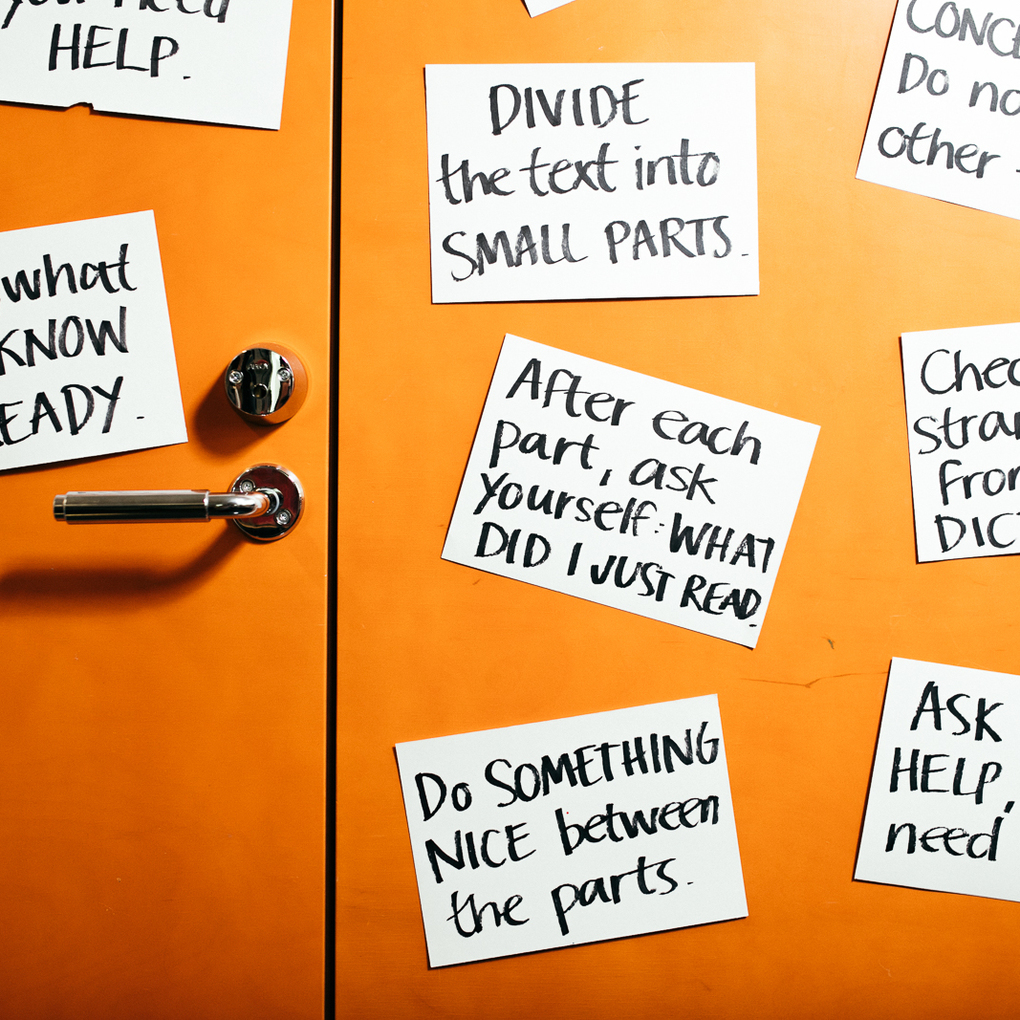 you need
HELP.
what
KNOW
READY.
DIVIDE
the text into
SMALL PARTS.
After each
part, ask
yourself: WHAT
DID I JUST READ.
Do SOMETHING
NICE between
the parts.
Do no
other
from
ASK
HELP,
need